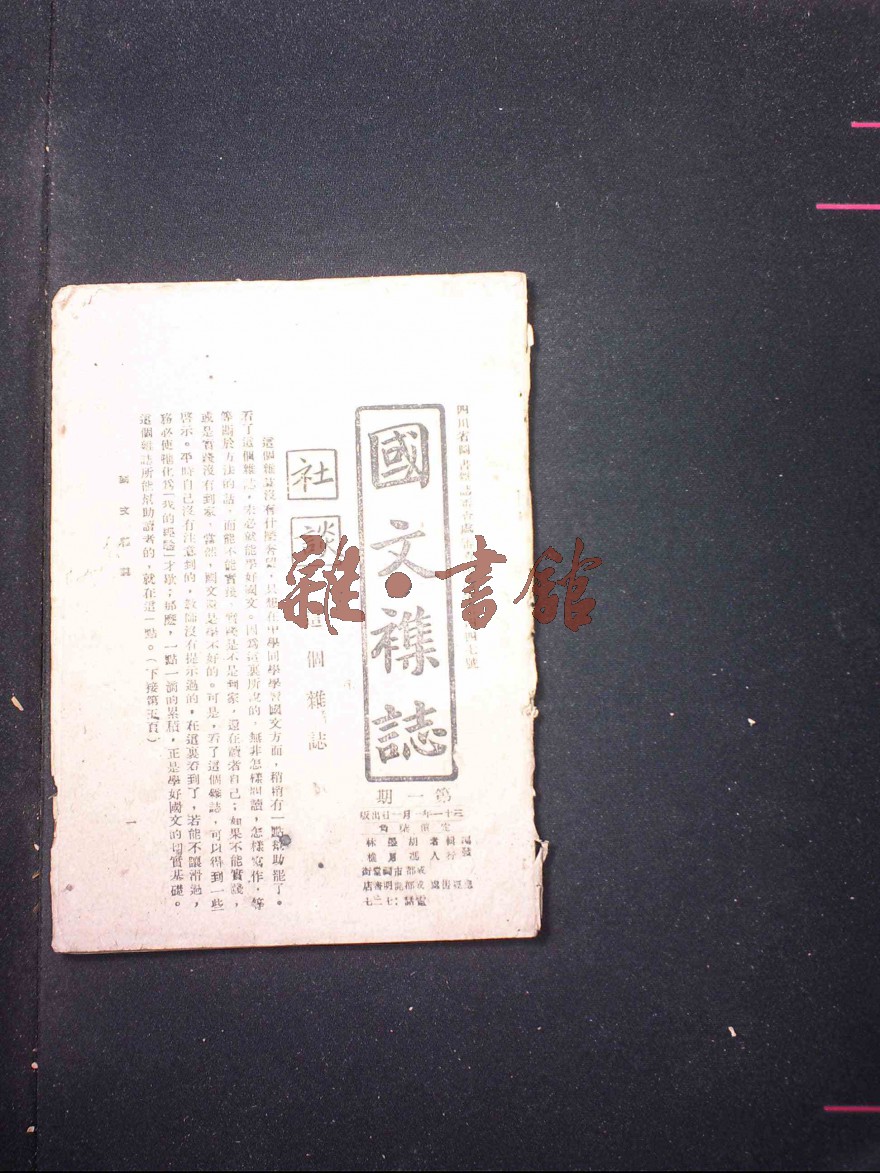 四川省圖書雜誌審查處
四七號
國文襍誌
第一期
三十一年一月一日出版
社談
個雜誌
這個雜誌沒有什麼奢望，只想在中學同學學習國文方面，稍稍有一點幫助罷了。
看了這個雜誌，未必就能學好國文。因爲這裏所說的，無非怎樣閱讀，怎樣寫作，等
等關於方法的話，而能不能實踐，實踐是不是到家，還在讀者自己；如果不能實踐，
或是實踐沒有到家，當然，國文還是學不好的。可是，看了這個雜誌，可以得到一些
啓示。平時自己沒有注意到的，教師沒有提示過的，在這裏看到了，若能不讓滑過，
務必使牠化爲「我的經驗」才歇；那麼，一點一滴的累積，正是學好國文的切實基礎。
這個雜誌所能幫助讀者的，就在這一點。（下接第五頁）
國文雜誌
一
雜·書館